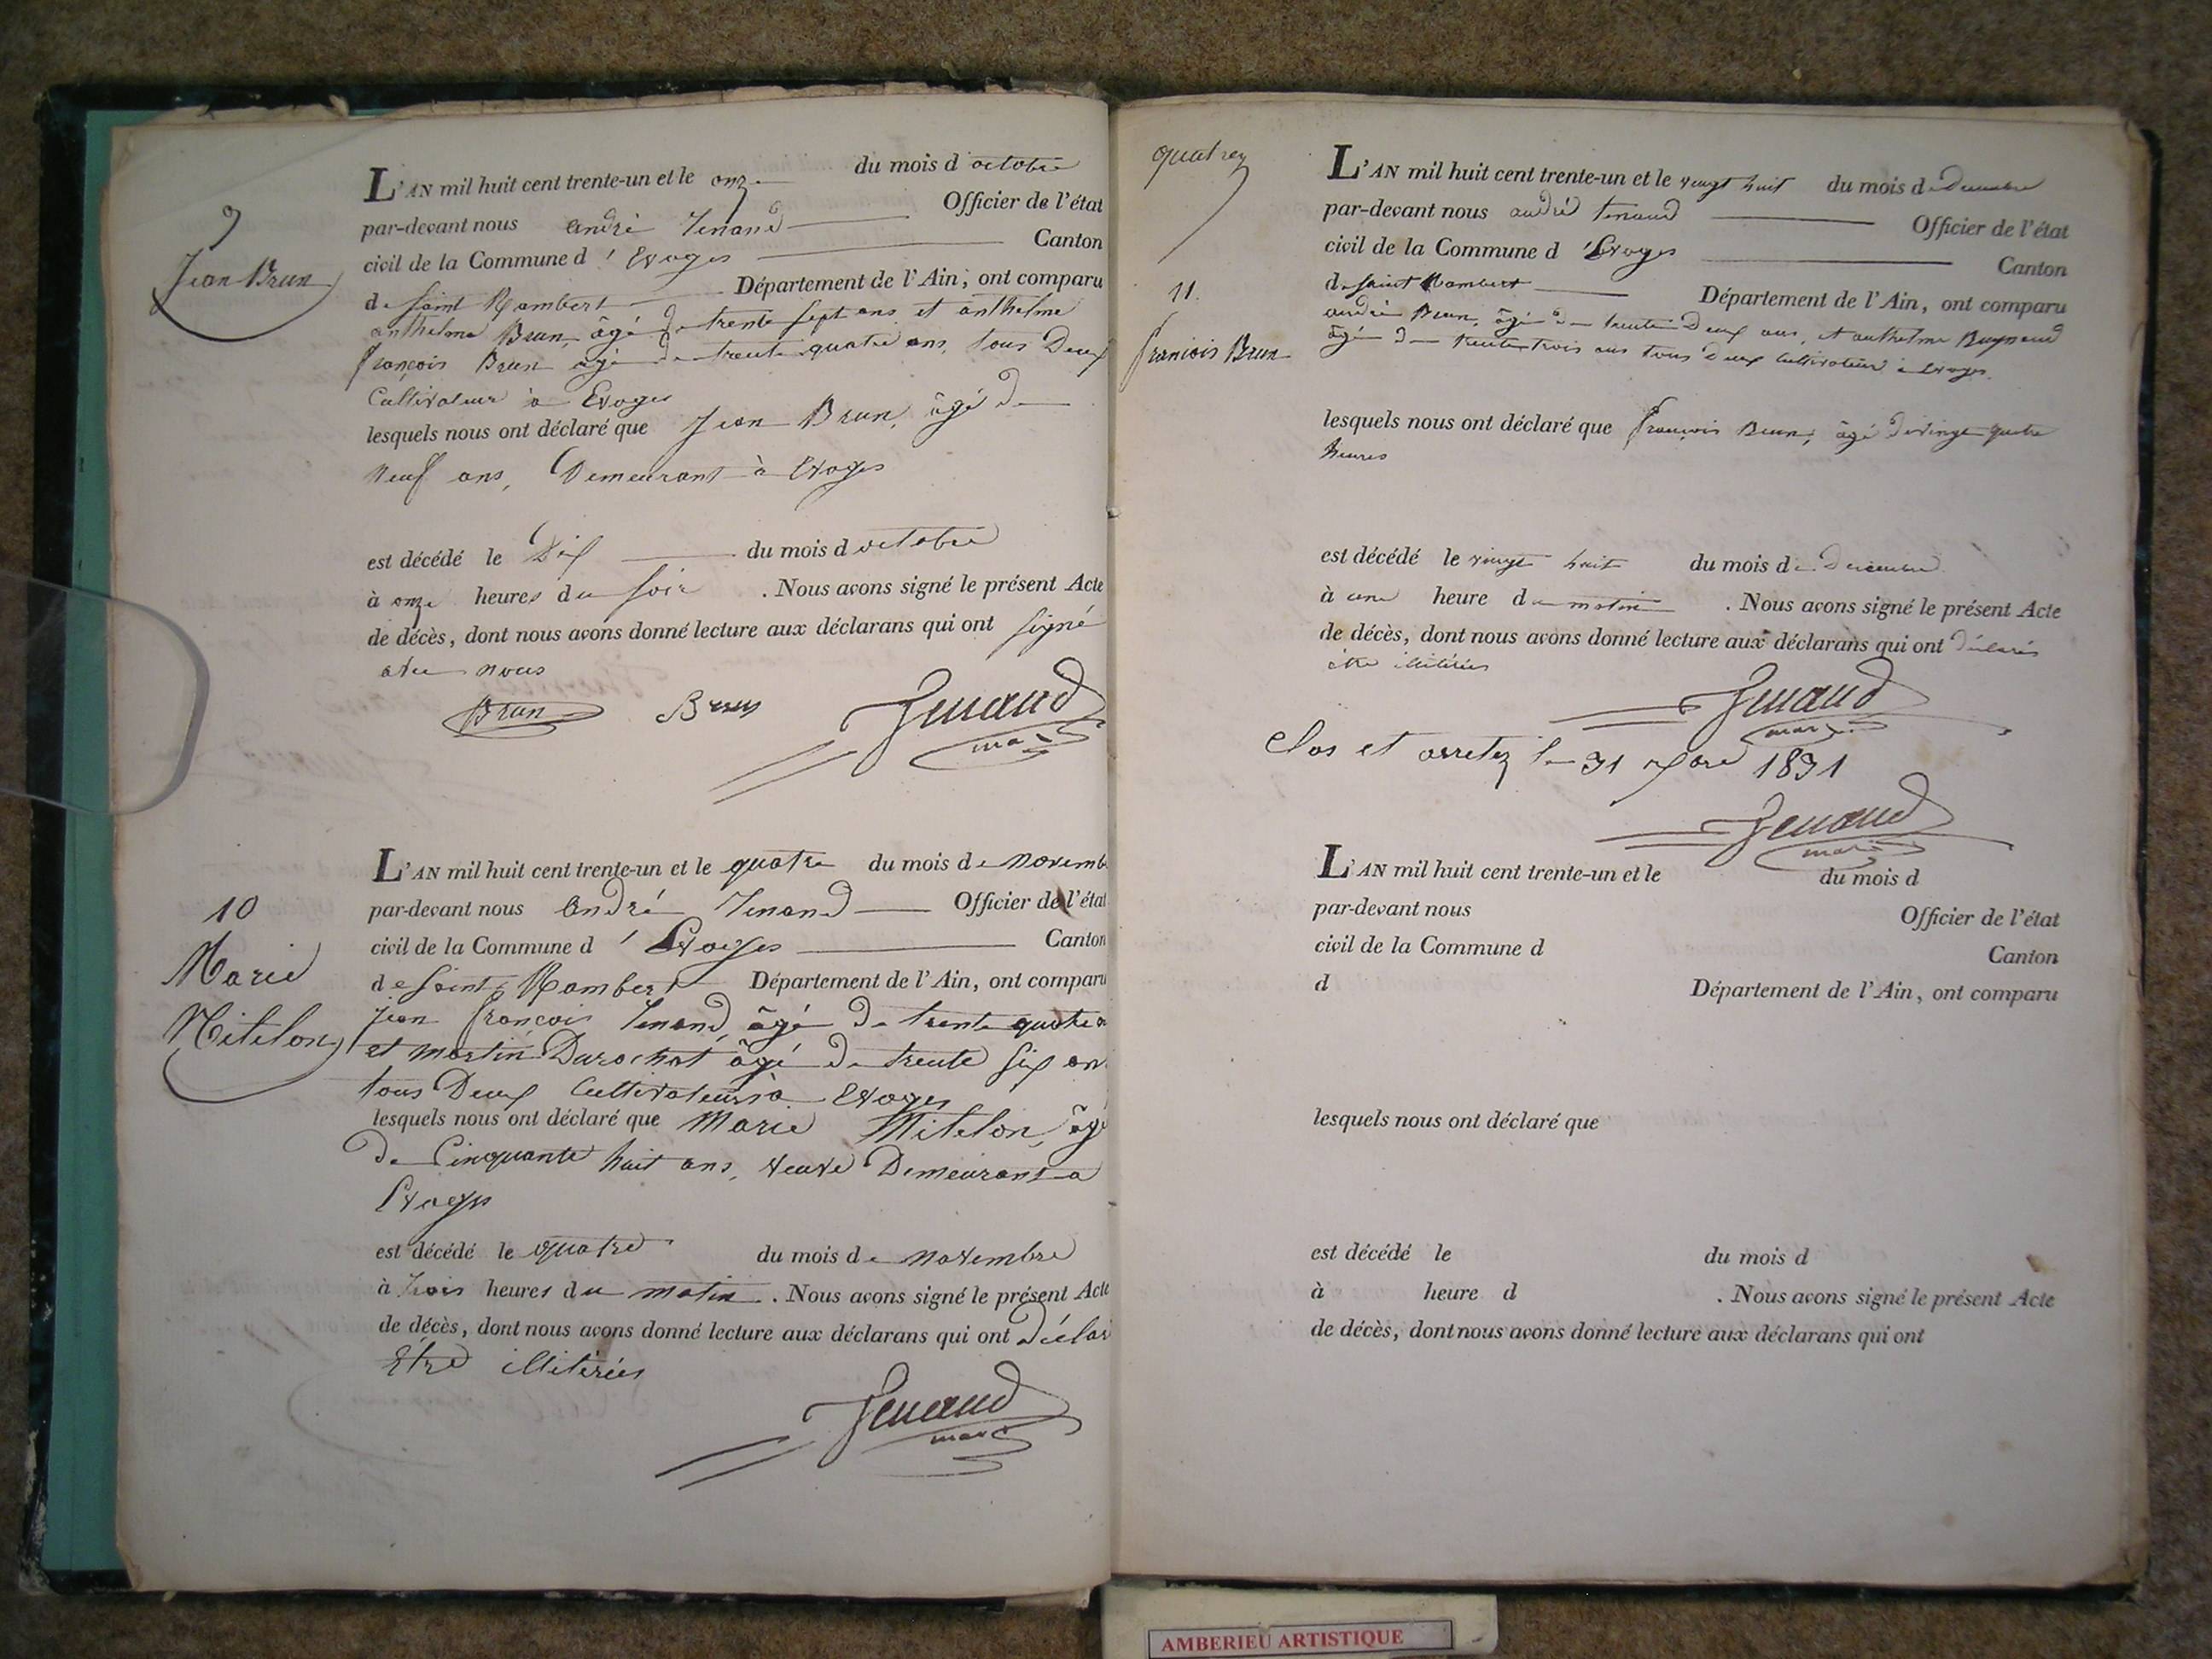 9
Jean Brun
L'AN mil huit cent trente-un et le onze du mois d'octobre
par-devant nous André Tenand Officier de l'état
civil de la Commune d'Evoges Canton
de Saint Rambert Département de l'Ain, ont comparu
anthelme Brun, âgé de trente sept ans et anthelme
françois Brun âgé de trente quatre ans, tous Deux
Cultivateur à Evoges
lesquels nous ont déclaré que Jean Brun, âgé de
Neuf ans, Demeurant à Evoges
est décédé le Dix du mois d octobre
à onze heures du soir . Nous avons signé le présent Acte
de décès, dont nous avons donné lecture aux déclarans qui ont signé
avec nous
Brun Brun Tenand
maire
10
Marie
Mitelon
L'AN mil huit cent trente-un et le quatre du mois de novemb
par-devant nous André Tenand Officier de l'état
civil de la Commune d'Evoges Canton
de Saint Rambert Département de l'Ain, ont comparu
Jean françois Tenand, âgé de trente quatre a
et martin Durochat âgé de trente six an
tous Deux Cultivateurs à Evoges
lesquels nous ont déclaré que Marie Mitelon, âgé
De Cinquante huit ans, veuve Demeurant a
Evoges
est décédé le quatre du mois de novembre
à trois heures du matin . Nous avons signé le présent Acte
de décès, dont nous avons donné lecture aux déclarans qui ont Déclar
Etre illitérées
Tenand
maire
quatrez
11.
françois Brun
L'AN mil huit cent trente-un et le vingt huit du mois de Decembre
par-devant nous andré tenand Officier de l'état
civil de la Commune d'Evoges Canton
de saint Rambert Département de l'Ain, ont comparu
andré Brun, âgé de trente Deux ans, et anthelme Reynaud
âgé de trente trois ans tous deux Cultivateur à Evoges.
lesquels nous ont déclaré que françois Brun, âgé de vingt quatre
heures
est décédé le vingt huit du mois de Decembre
à une heure du matin . Nous avons signé le présent Acte
de décès, dont nous avons donné lecture aux déclarans qui ont déclarés
être illitérées
Tenand
maire
Clos et arretez le 31 Xbre 1831
Tenand
maire
L'AN mil huit cent trente-un et le du mois d
par-devant nous Officier de l'état
civil de la Commune d Canton
d Département de l'Ain, ont comparu
lesquels nous ont déclaré que
est décédé le du mois d
à heure d . Nous avons signé le présent Acte
de décès, dont nous avons donné lecture aux déclarans qui ont
AMBERIEU ARTISTIQUE